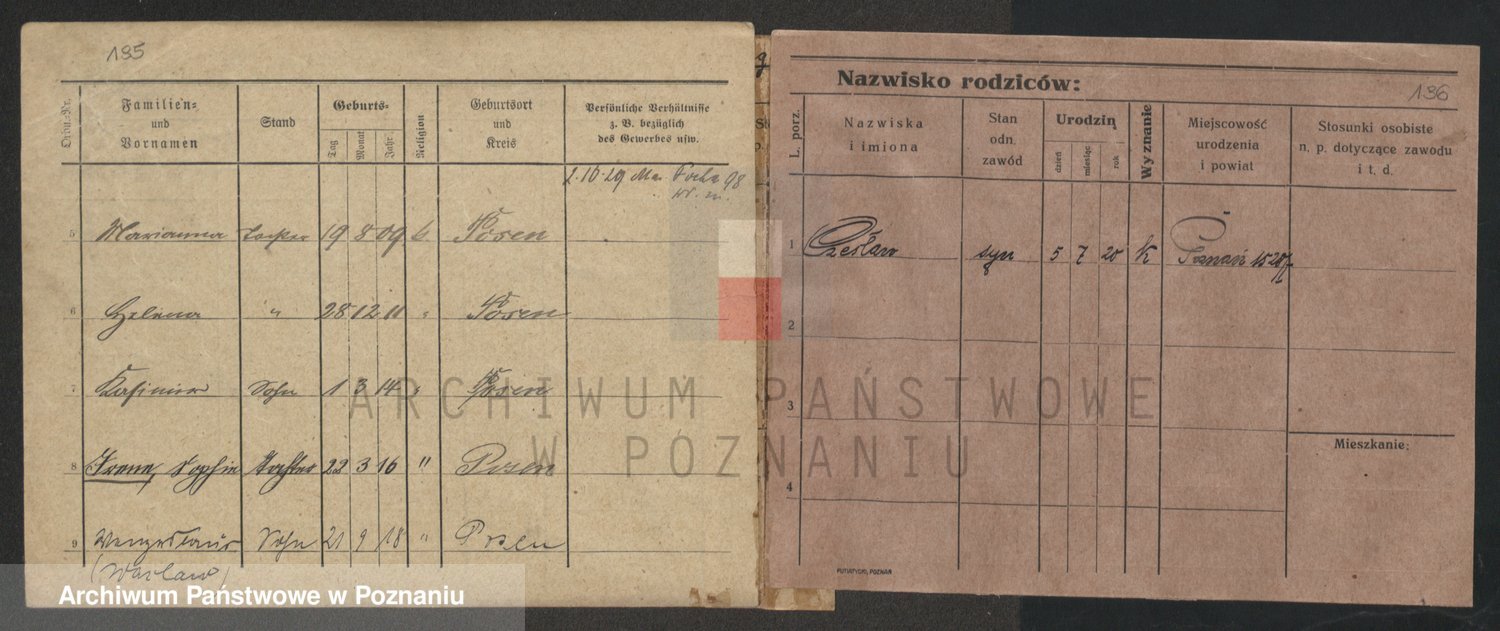 195
Ordn.-Nr.
Familien- und Vornamen
Stand
Geburts-
Tag
Monat
Jahr
Religion
Geburtsort und Kreis
Persönliche Verhältnisse
z. B. bezüglich
des Gewerbes usw.
2.10.29
98
5 Marianna Tochter 19 8 09 k Posen
6 Helena " 28 12 11 " Posen
7 Kasimir Sohn 1 3 14 " Posen
8 Irene, Sophie Tochter 22 3 16 " Posen
9 Wenzeslaus Sohn 21 9 18 " Posen
(Wacław)
Archiwum Państwowe w Poznaniu
Nazwisko rodziców:
196
L. porz.
Nazwiska
i imiona
Stan
odn.
zawód
Urodzin
dzień
miesiąc
rok
Wyznanie
Miejscowość
urodzenia
i powiat
Stosunki osobiste
n. p. dotyczące zawodu
i t. d.
1 Czesław syn 5 7 20 k Poznań
2
3
Mieszkanie:
4
PUTIATYCKI, POZNAŃ
ARCHIWUM PAŃSTWOWE
W POZNANIU